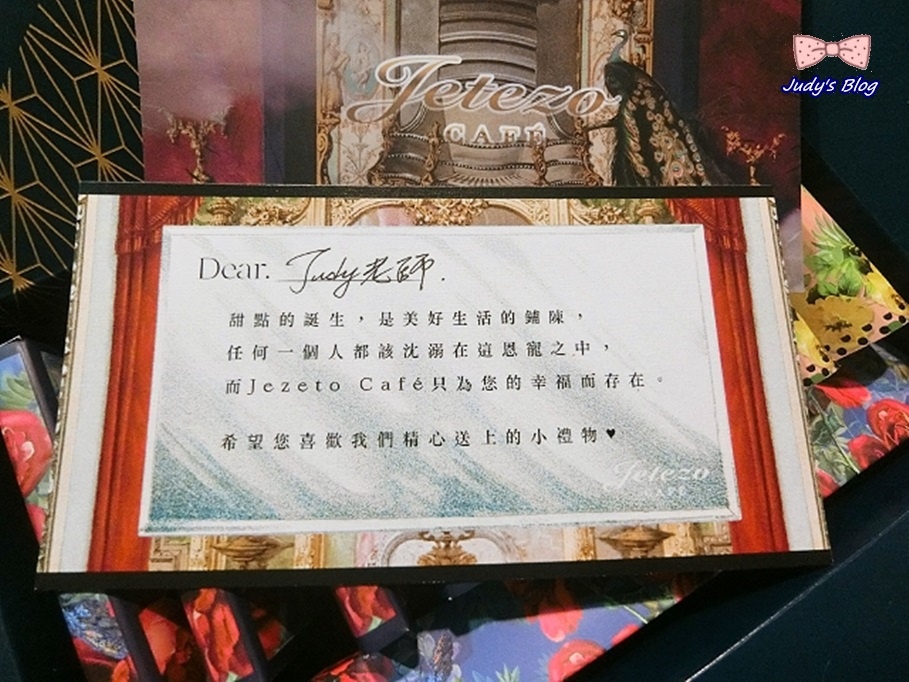 Judy's Blog
Jetezo
CAFÉ
Dear. Judy老師.
甜點的誕生，是美好生活的鋪陳，
任何一個人都該沈溺在這恩寵之中，
而Jezeto Café只為您的幸福而存在。
希望您喜歡我們精心送上的小禮物♥
Jetezo
CAFÉ